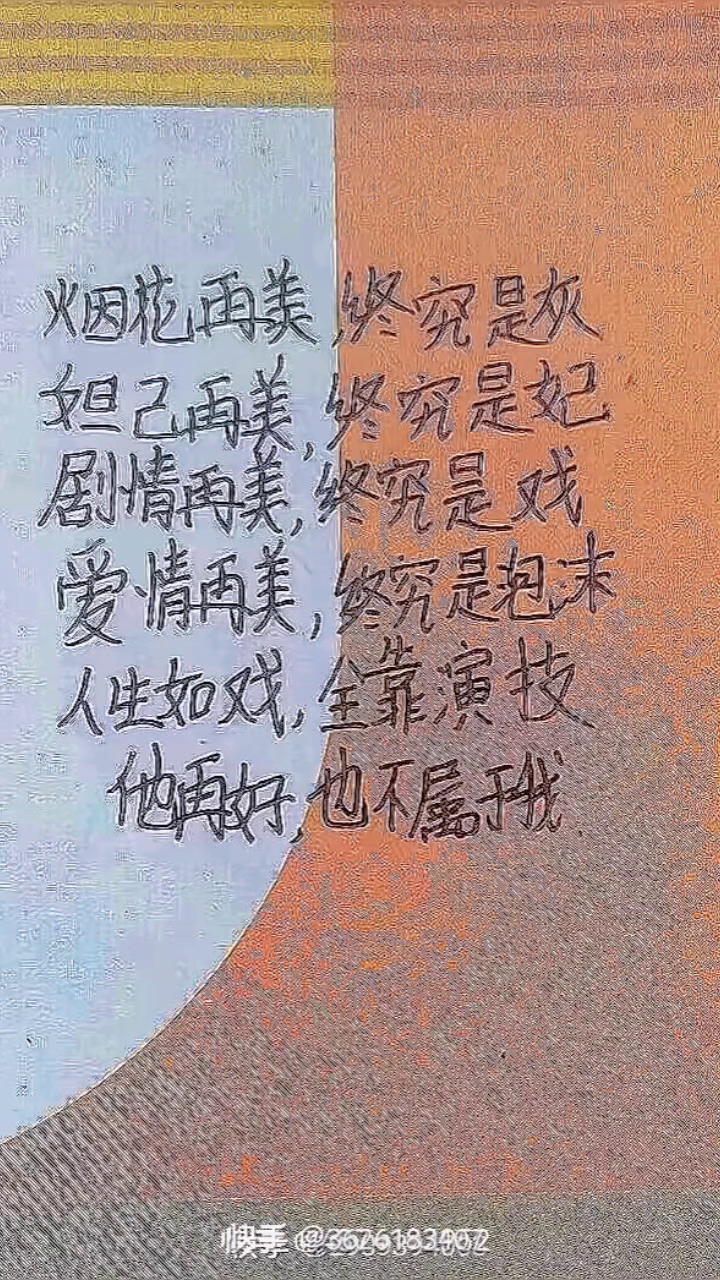 烟花再美,终究是灰
妲己再美,终究是妃
剧情再美,终究是戏
爱情再美,终究是泡沫
人生如戏,全靠演技
他再好,也不属于我
快手